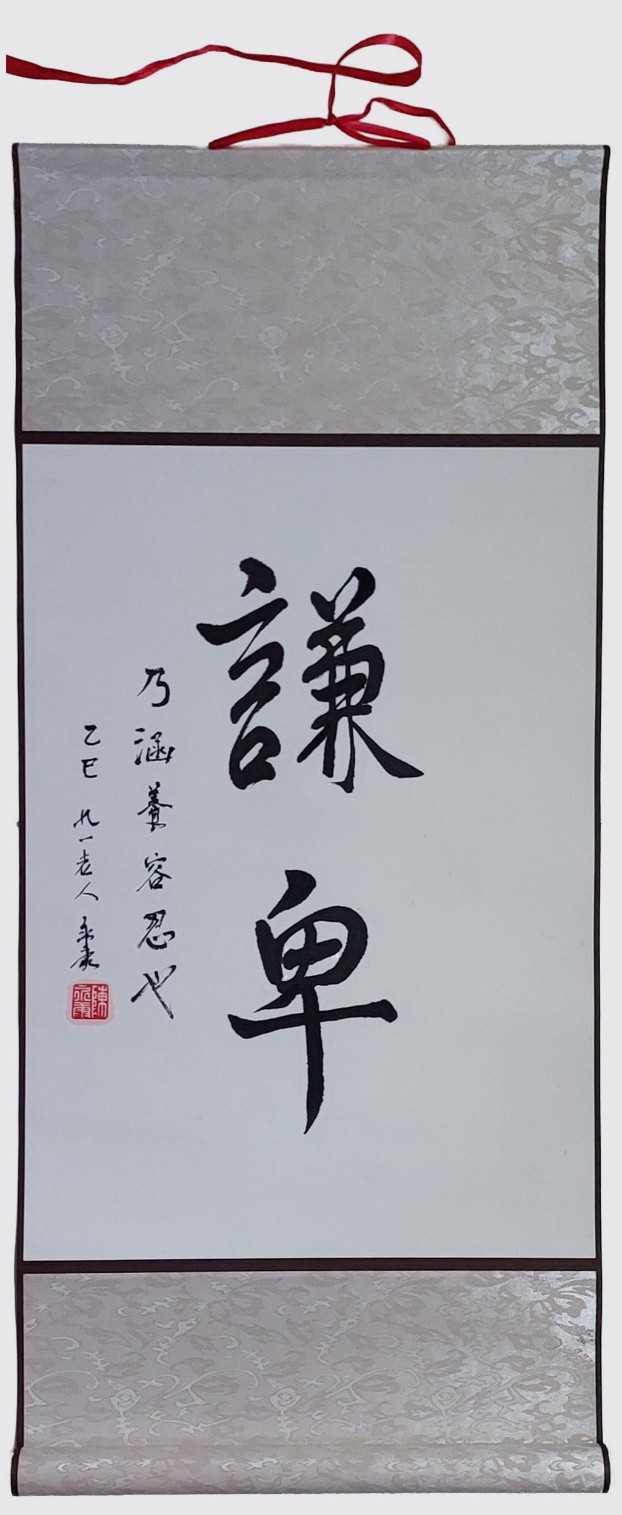 謙卑
乃涵養容忍也
乙巳 九一老人